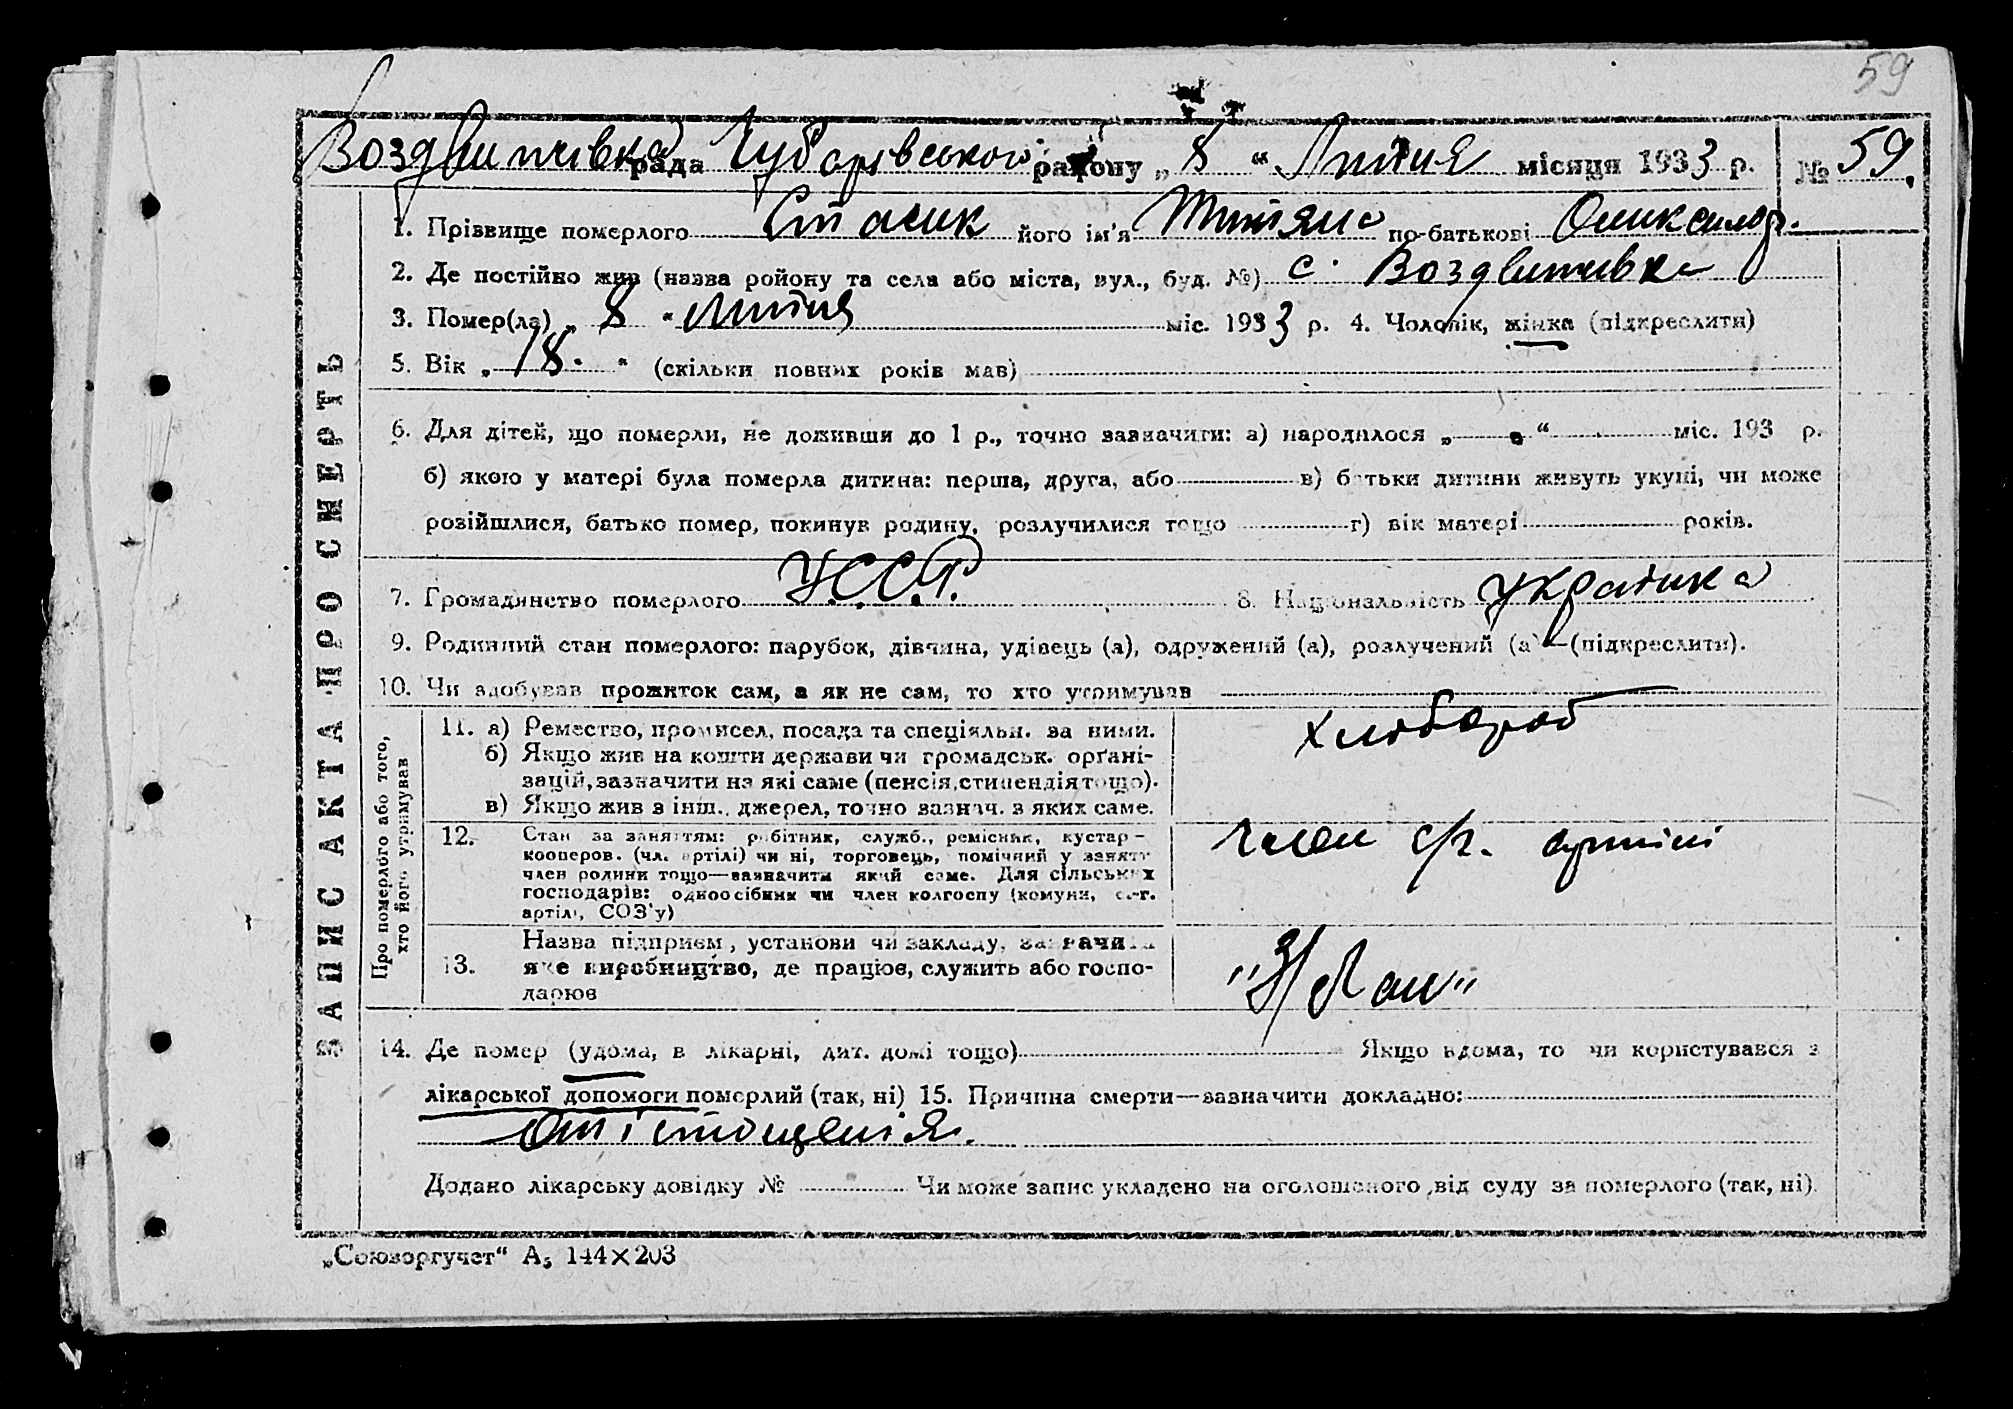 59
Воздвижівка рада Чубарівського району „ 8 “ Липня місяця 1933 р. № 59.
1. Прізвище померлого Стасик його ім'я Титяна по-батькові
2. Де постійно жив (назва ройону та села або міста, вул., буд. №) с. Воздвиживка
3. Помер(ла) „ 8 “ Липня міс. 1933 р. 4. Чоловік, жінка (підкреслити)
5. Вік „ 18. “ (скільки повних років мав)
6. Для дітей, що померли, не доживши до 1 р., точно зазначити: а) народилося „ “ міс. 193 р.
б) якою у матері була померла дитина: перша, друга, або в) батьки дитини живуть укупі, чи може
розійшлися, батько помер, покинув родину, розлучилися тощо г) вік матері років.
7. Громадянство померлого У.С.С.Р. 8. Національність Українка
9. Родинний стан померлого: парубок, дівчина, удівець (а), одружений (а), розлучений (а)—(підкреслити).
10. Чи здобував прожиток сам, а як не сам, то хто утримував
ЗАПИС АКТА ПРО СМЕРТЬ
Про померлого або того,
хто його утримував
11. а) Ремество, промисел, посада та спеціяльн. за ними.
б) Якщо жив на кошти держави чи громадськ. орґані-
зацій, зазначити на які саме (пенсія, стипендія тощо).
в) Якщо жив з інш. джерел, точно зазнач. з яких саме.
хлібороб
12. Стан за заняттям: робітник, служб., ремісник, кустар-
кооперов. (чл. артілі) чи ні, торговець, помічний у занятт
член родини тощо—зазначити який саме. Для сільських
господарів: одноосібник чи член колгоспу (комуни, с.-г.
артілі, СОЗ'у)
член с/г. артілі
13. Назва підприєм., установи чи закладу, зазначити
яке виробництво, де працює, служить або госпо-
дарює
"З/Лан"
14. Де помер (удома, в лікарні, дит. домі тощо) Якщо вдома, то чи користувався з
лікарської допомоги померлий (так, ні) 15. Причина смерти—зазначити докладно:
От істощенія.
Додано лікарську довідку № Чи може запис укладено на оголошеного від суду за померлого (так, ні).
„Союзоргучет“ А5 144×203